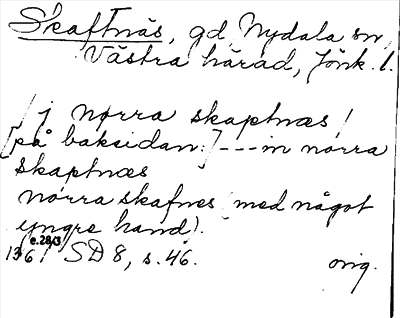 Skaftnäs, gd, Nydala sn,
Västra härad, Jönk. l.
/ j nørra skaptnæs /
[på baksidan:] --- in norra
skaptnæs
norra skafnes (med något
yngre hand).
e.28/3
1361 SD 8, s. 46. orig.